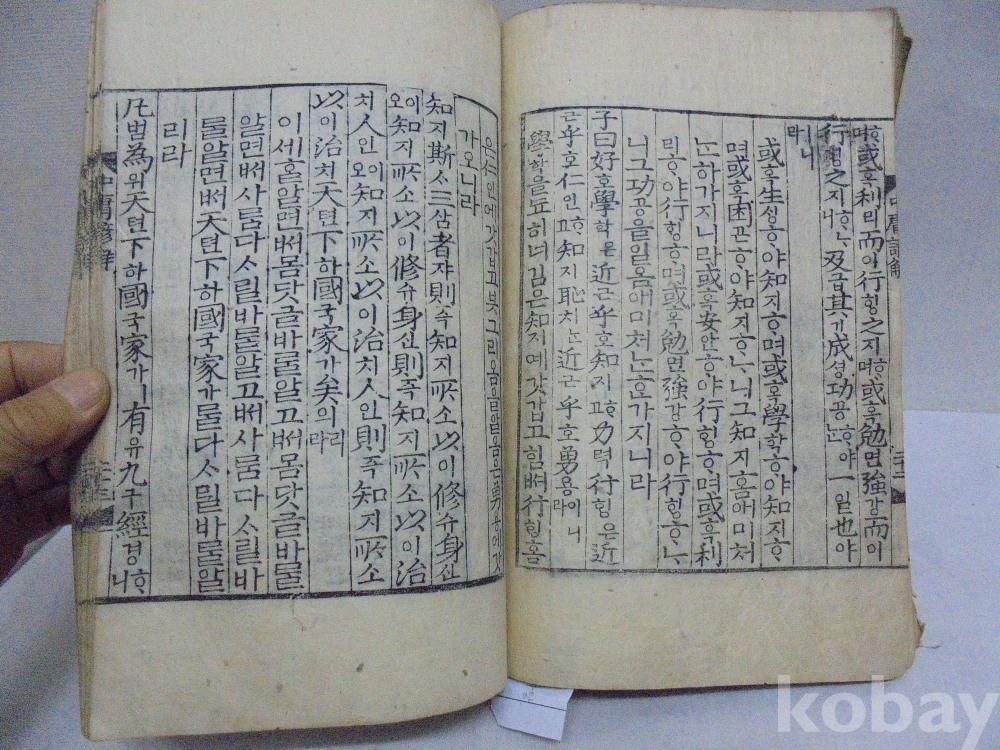 ᄒᆞ며或호利리而이行ᄒᆡᆼ之지ᄒᆞ며或혹勉면強강而이
行ᄒᆡᆼ之지ᄒᆞᄂᆞ니及급其기成셩功공ᄒᆞ야ᄂᆞᆫ一일也야
ㅣ니라
或혹生ᄉᆡᆼᄒᆞ야知지ᄒᆞ며或혹學학ᄒᆞ야知지ᄒᆞ
며或혹困곤ᄒᆞ야知지ᄒᆞᄂᆞ니그知지홈애미처
ᄂᆞᆫ하가지니라或혹安안ᄒᆞ야行ᄒᆡᆼᄒᆞ며或혹利
리ᄒᆞ야行ᄒᆡᆼᄒᆞ며或혹勉면強강ᄒᆞ야行ᄒᆡᆼᄒᆞᄂᆞ
니그功공을일옴애미처ᄂᆞᆫᄒᆞᆫ가지니라
子曰好호學학은近근乎호知지ᄒᆞ고力력行ᄒᆡᆼ은近
근乎호仁인ᄒᆞ고知지恥치ᄂᆞᆫ近근乎호勇용이니라
學학을됴히너김은知지예갓갑고힘ᄡᅥ行ᄒᆡᆼ홈
은仁인에갓갑고붓그리옴을알옴은勇용에갓
가오니라
知지斯ᄉᆞ三삼者쟈則즉知지所소以이修슈身신
이오知지所소以이修슈身신則즉知지所소以이治
치人인이오知지所소以이治치人인則즉知지所소
以이治치天텬下하國국家가矣의리라
이세흘알면ᄡᅥ몸닷글바를알고ᄡᅥ몸닷글바ᄅᆞᆯ
알면ᄡᅥ사ᄅᆞᆷ다ᄉᆞ릴바ᄅᆞᆯ알고ᄡᅥ사ᄅᆞᆷ다ᄉᆞ릴바
ᄅᆞᆯ알면ᄡᅥ天텬下하國국家가ᄅᆞᆯ다ᄉᆞ릴바ᄅᆞᆯ알
리라
凡범為위天텬下하國국家가ㅣ有유九구經경ᄒᆞ니
中庸諺解
kobay